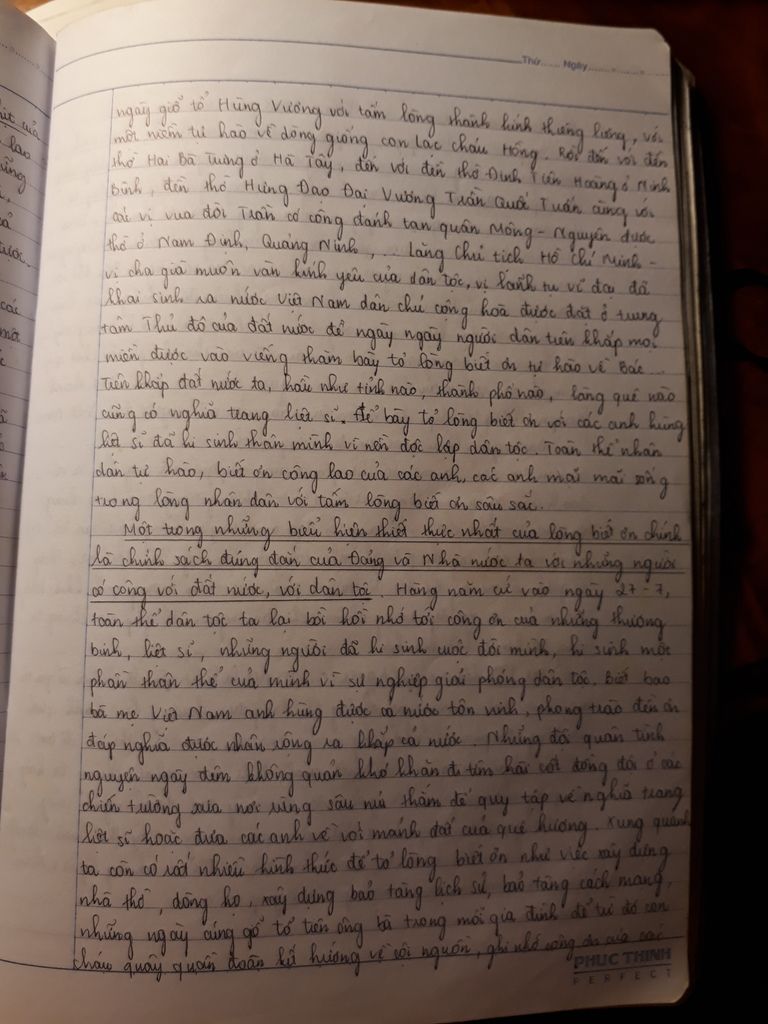 Thứ...... Ngày...............
ngày giỗ tổ Hùng Vương với tấm lòng thành kính thiêng liêng, với
một niềm tự hào về dòng giống con Lạc cháu Hồng. Rồi đến với đền
thờ Hai Bà Trưng ở Hà Tây, đến với đền thờ Đinh Tiên Hoàng ở Ninh
Bình, đền thờ Hưng Đạo Đại Vương Trần Quốc Tuấn cùng với
các vị vua đời Trần có công đánh tan quân Mông - Nguyên được
thờ ở Nam Định, Quảng Ninh,... Lăng Chủ tịch Hồ Chí Minh -
vị cha già muôn vàn kính yêu của dân tộc, vị lãnh tụ vĩ đại đã
khai sinh ra nước Việt Nam dân chủ cộng hoà được đặt ở trung
tâm Thủ đô của đất nước để ngày ngày người dân trên khắp mọi
miền được vào viếng thăm bày tỏ lòng biết ơn tự hào về Bác...
Trên khắp đất nước ta, hầu như tỉnh nào, thành phố nào, làng quê nào
cũng có nghĩa trang liệt sĩ. Để bày tỏ lòng biết ơn với các anh hùng
liệt sĩ đã hi sinh thân mình vì nền độc lập dân tộc. Toàn thể nhân
dân tự hào, biết ơn công lao của các anh, các anh mãi mãi sống
trong lòng nhân dân với tấm lòng biết ơn sâu sắc.
Một trong những biểu hiện thiết thực nhất của lòng biết ơn chính
là chính sách đúng đắn của Đảng và Nhà nước ta với những người
có công với đất nước, với dân tộc. Hàng năm cứ vào ngày 27-7,
toàn thể dân tộc ta lại bồi hồi nhớ tới công ơn của những thương
binh, liệt sĩ, những người đã hi sinh cuộc đời mình, hi sinh một
phần thân thể của mình vì sự nghiệp giải phóng dân tộc. Biết bao
bà mẹ Việt Nam anh hùng được cả nước tôn vinh, phong trào đền ơn
đáp nghĩa được nhân rộng ra khắp cả nước. Những đội quân tình
nguyện ngày đêm không quản khó khăn đi tìm hài cốt đồng đội ở các
chiến trường xưa nơi rừng sâu núi thẳm để quy tập về nghĩa trang
liệt sĩ hoặc đưa các anh về với mảnh đất của quê hương. Xung quanh
ta còn có rất nhiều hình thức để tỏ lòng biết ơn như việc xây dựng
nhà thờ, dòng họ, xây dựng bảo tàng lịch sử, bảo tàng cách mạng,
những ngày cúng giỗ tổ tiên ông bà trong mỗi gia đình để từ đó con
cháu quây quần đoàn kết hướng về cội nguồn, ghi nhớ công ơn của các
PHUC THINH
PERFECT